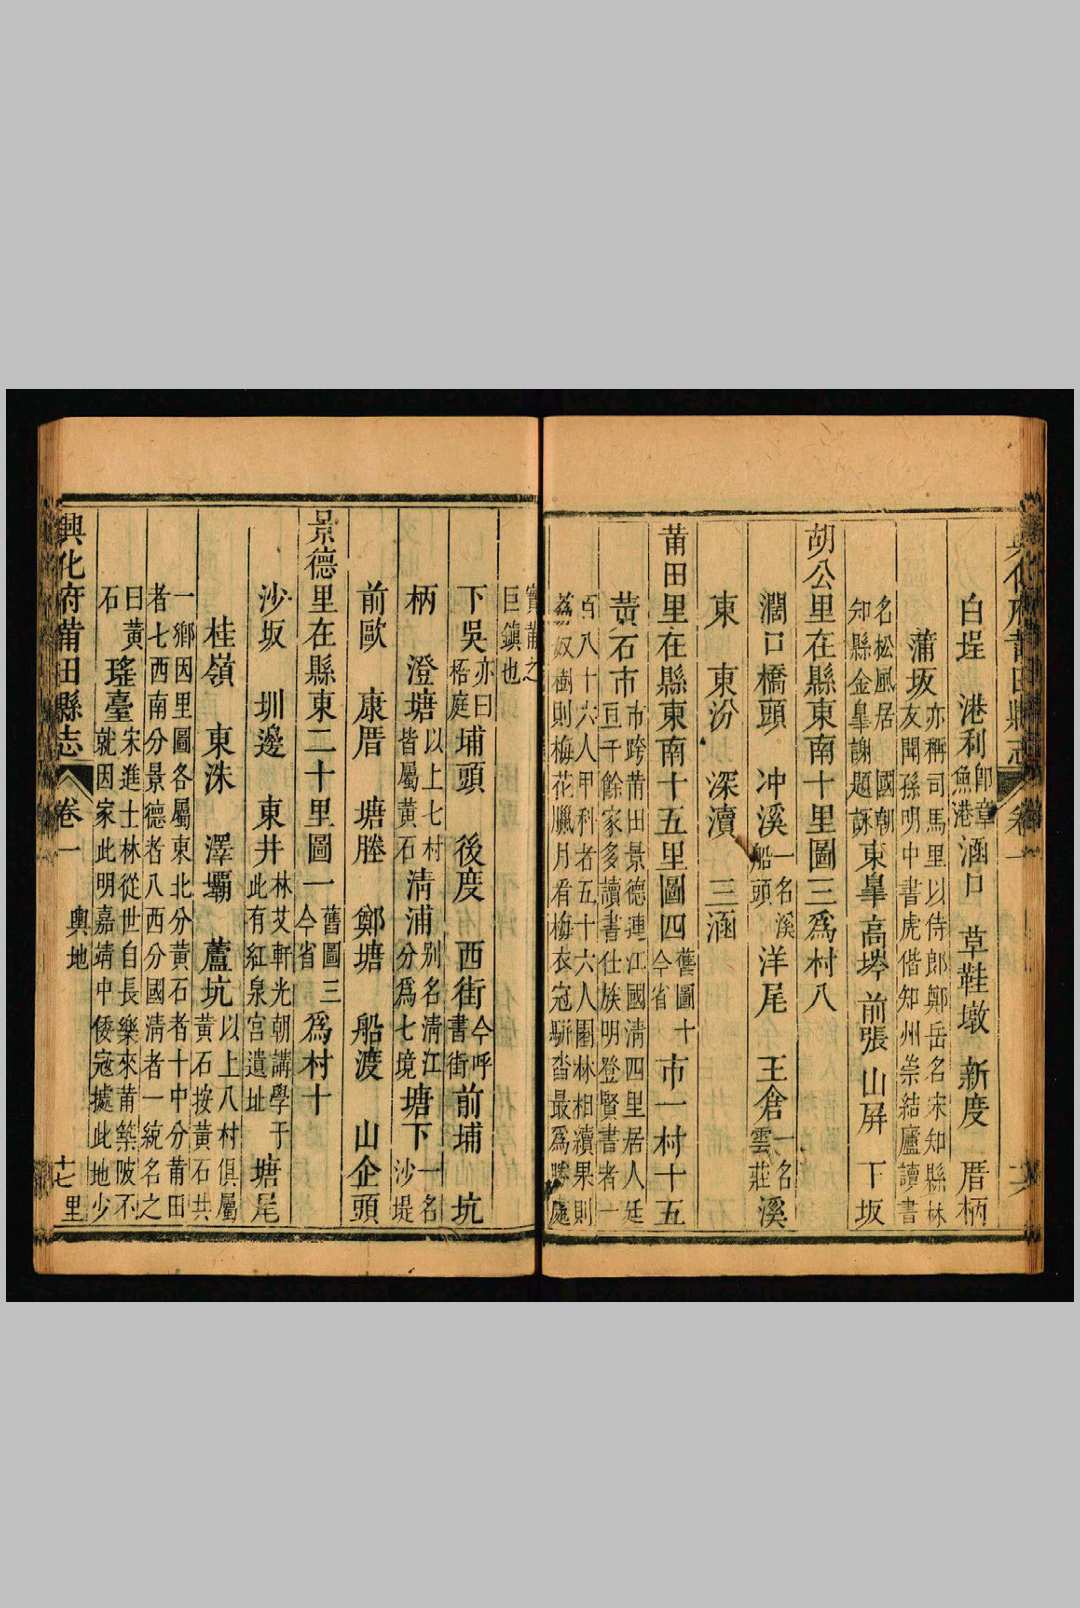 興化府莆田縣志 卷一 十六
白埕 港利即章魚港 涵口 草鞋墩 新度 厝柄
蒲坂亦稱司馬里以侍郎鄭岳名宋知縣林友聞孫明中書虎偕知州崇結廬讀書
名松風居 國朝知縣金皐謝題詠 東皐 高埁 前張 山屏 下坂
胡公里在縣東南十里圖三爲村八
濶口橋頭 冲溪一名溪船頭 洋尾 王倉一名雲莊 溪
東 東汾 深瀆 三涵
莆田里在縣東南十五里圖四舊圖十今省 市一村十五
黃石市市跨莆田景德連江國清四里居人廷亘千餘家多讀書仕族明登賢書者一
百八十六人甲科者五十六人園林相續果則荔奴樹則梅花臘月看梅衣冠駢沓最爲勝處
實莆之巨鎮也
下吳亦曰梧庭 埔頭 後度 西街今呼書街 前埔 坑
柄 澄塘以上七村皆屬黃石 清浦别名清江分爲七境 塘下一名沙堤
前歐 康厝 塘塍 鄭塘 船渡 山企頭
景德里在縣東二十里圖一舊圖三今省 爲村十
沙坂 圳邊 東井林艾軒光朝講學于此有紅泉宮遺址 塘尾
桂嶺 東洙 澤壩 蘆坑以上八村俱屬黃石按黃石共
一鄉因里圖各屬東北分黃石者十中分莆田者七西南分景德者八西分國清者一統名之
曰黃石 瑤臺宋進士林從世自長樂來莆築陂不就因家此明嘉靖中倭寇據此地少
興化府莆田縣志 卷一 輿地 十七 里